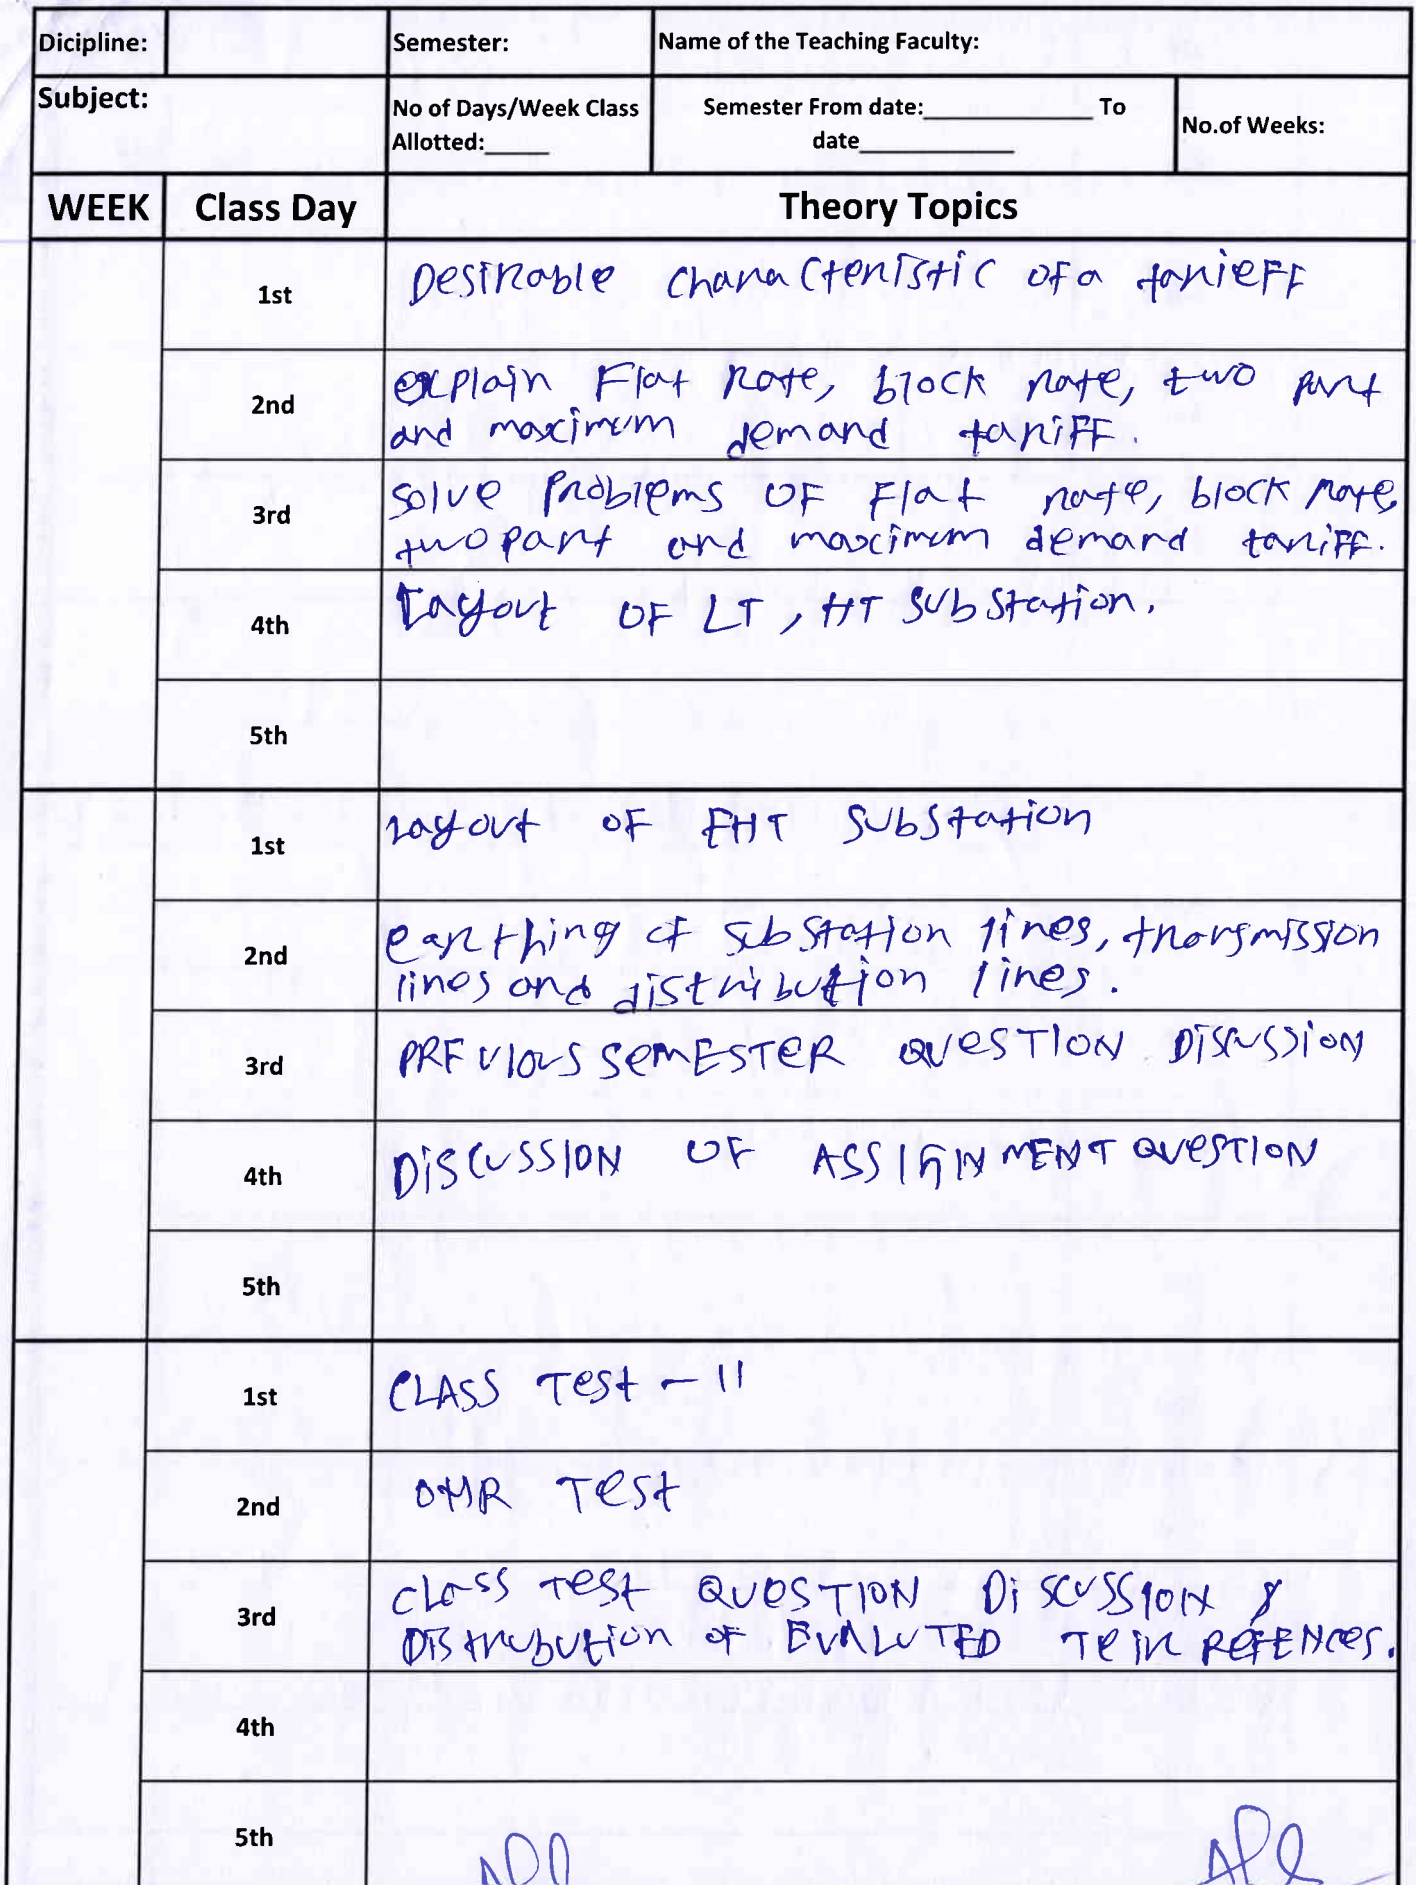 Dicipline: Semester: Name of the Teaching Faculty:
Subject: No of Days/Week Class Allotted:_____ Semester From date:_____________ To date____________ No.of Weeks:
WEEK Class Day Theory Topics
1st Desirable characteristic of a tarieff
2nd explain Flat rate, block rate, two part
and maximum demand tariff.
3rd solve problems of Flat rate, block rate,
two part and maximum demand tariff.
4th Layout OF LT, HT substation.
5th
1st Layout OF EHT Substation
2nd earthing of substation lines, transmission
lines and distribution lines.
3rd PREVIOUS SEMESTER QUESTION DISCUSSION
4th DISCUSSION OF ASSIGNMENT QUESTION
5th
1st CLASS Test - 11
2nd OMR Test
3rd class test QUESTION DiSCUSSION &
Distrubution of EVALUTED
4th
5th